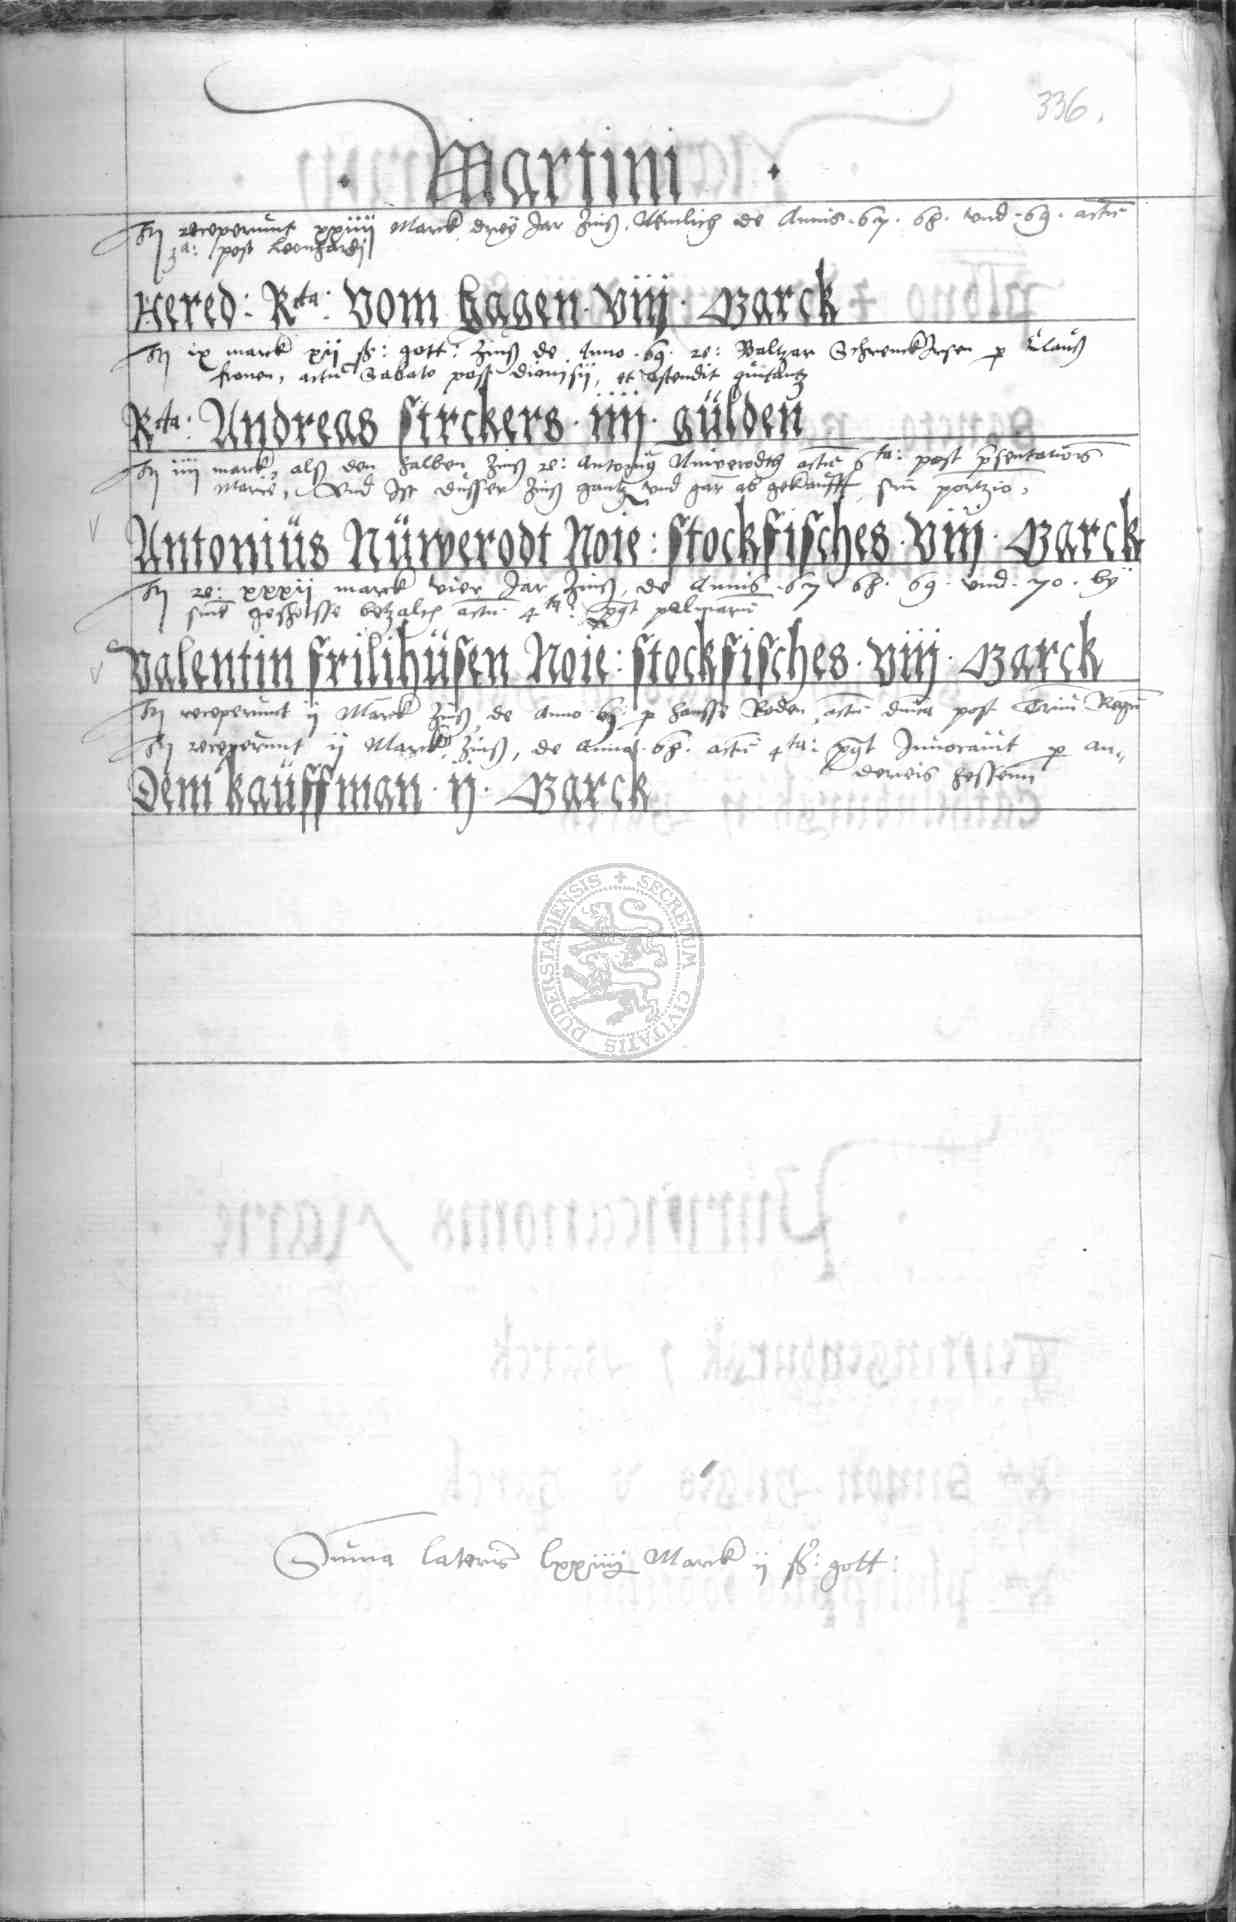 336.
Martini
Hij receperunt xxiiij Marck drey Jar Zinß, Nemlich de Annis · 67 · 68 · und · 69 · actū
3a: post Leonhardj
Hered: Rcta: Vom Hagen · viij · Marck
Hij ix marck xij ß: gott: Zinß de Anno · 69 · re: Baltzar Schrenckysen p Clauß
fronen, actū Sabato post dionisij, et ostendit quitantz
Rcta: Andreas strckers · iiij · gülden
Hij iiij marck als den halben Zinß re: Antonius Nuwerodt actū 6ta: post presentationis
Marie, Und Ist dusser Zinß gantz und gar ab gekaufft, sin portzio,
Antonius Nüwerodt Noie: stockfisches · viij · Marck
Hij re: xxxij marck vier Jar Zinß, de Annis · 67 · 68 · 69 · und · 70 · by
sine geschosse betzalt actū 4ta: pgt palmarū
Valentin frilihüsen Noie: stockfisches · viij · Marck
Hij receperunt ij Marck Zinß de Anno · 67 · p Hansse Roden, actū dnica post Triū Regū
Hij receperunt ij Marck Zinß, de Anno · 68 · actū 4ta: pgt Invocavit p An-
dereis Hessenn
Dem kauffman · ij · Marck
DUDERSTADIENSIS + SECRETUM CIVITATIS
Suma lateris lxxiiij Marck ij ß: gott: